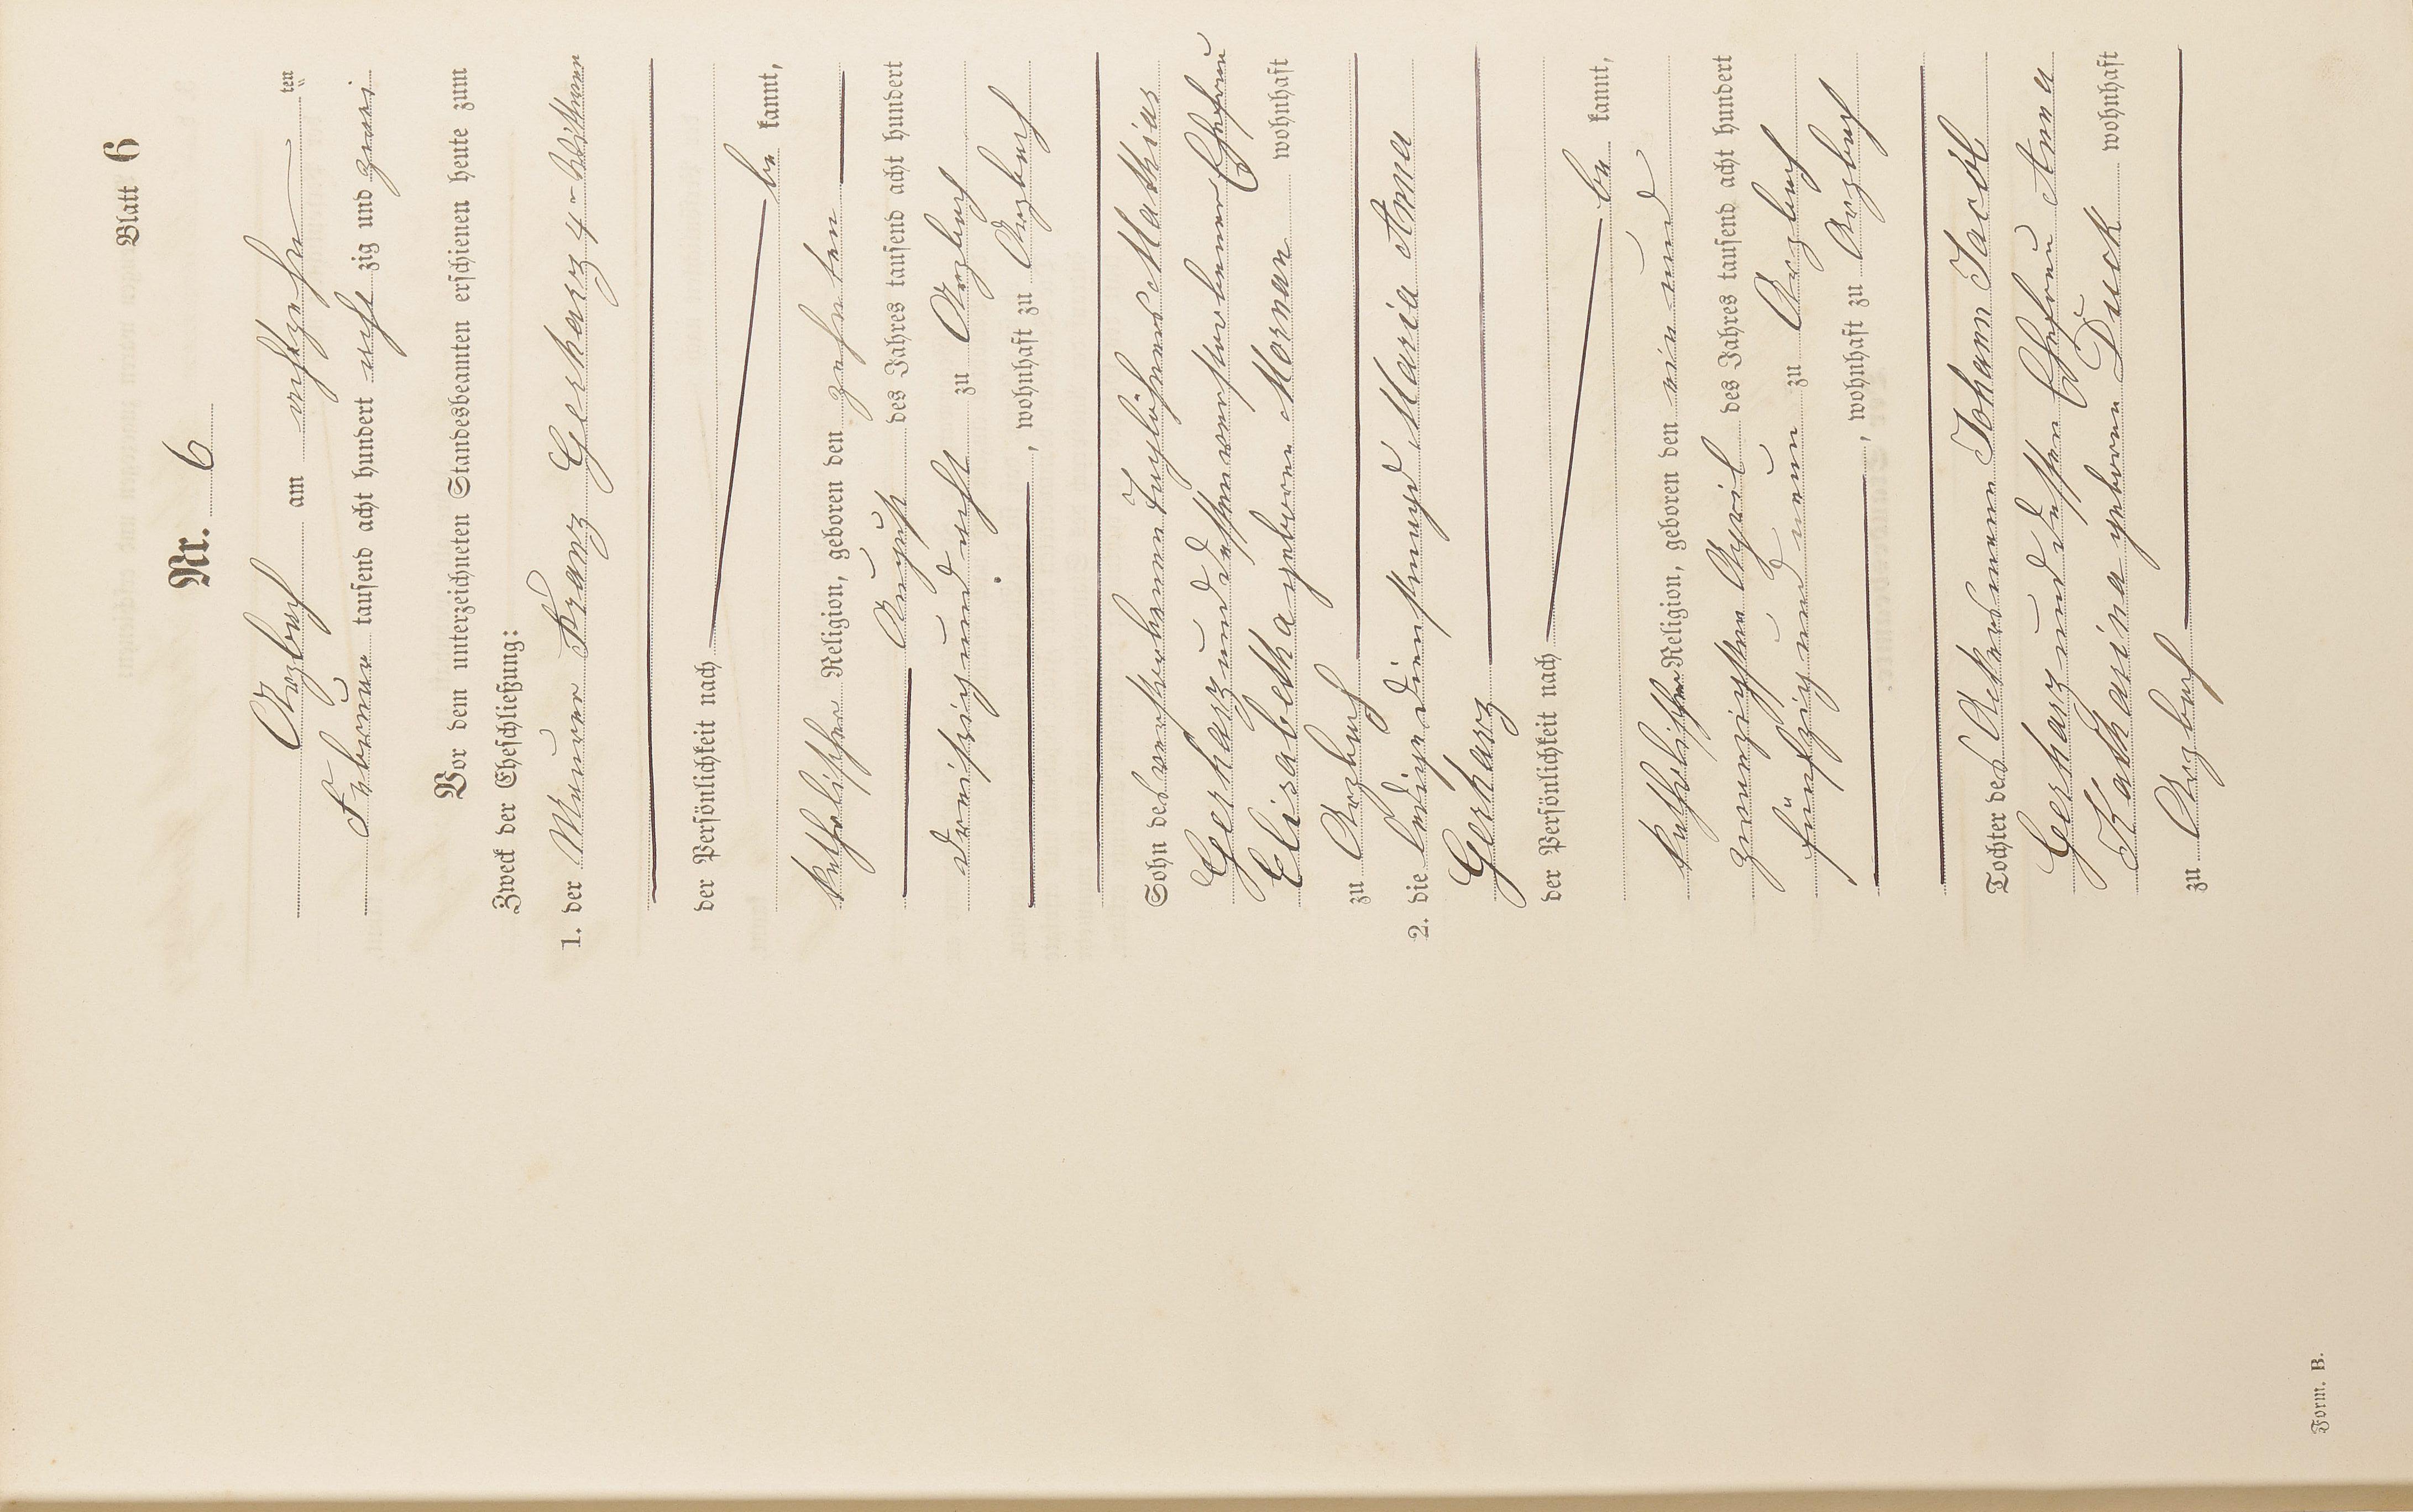 Blatt 6
Nr. 6
Arzbach am achtzehn ten
Februar tausend acht hundert acht zig und zwei
Vor dem unterzeichneten Standesbeamten erschienen heute zum
Zweck der Eheschließung:
1. der Maurer Franz Gerharz 4r Wittwer
der Persönlichkeit nach
be kannt,
katholischer Religion, geboren den zehnten
August des Jahres tausend acht hundert
dreißig und acht zu Arzbach
, wohnhaft zu Arzbach
Sohn des verstorbenen Taglöhners Mathias
Gerharz und dessen verstorbenen Ehefrau
Elisabetha geborene wohnhaft
zu Arzbach
2. die ledige Dienstmagd Maria Anna
Gerharz
der Persönlichkeit nach
be kannt,
katholischer Religion, geboren den ein und
zwanzigsten April des Jahres tausend acht hundert
fünfzig und neun zu Arzbach
, wohnhaft zu Arzbach
Tochter des Ackersmann Johann Jacob
Gerharz und dessen Ehefrau Anna
Katharina geborene Duck wohnhaft
zu Arzbach
Form. B.